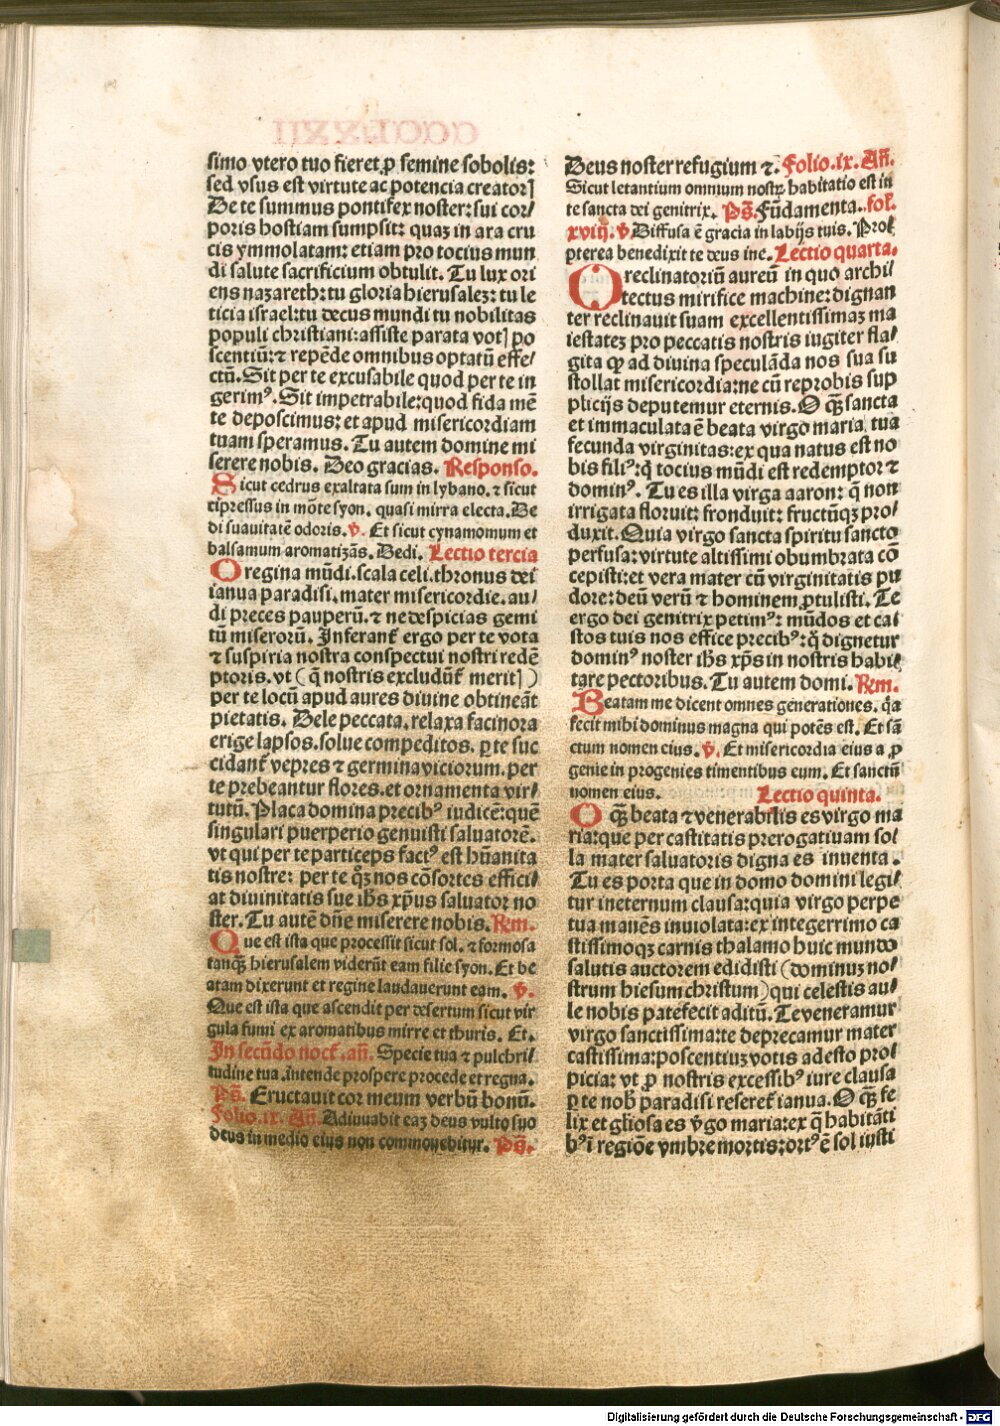 simo vtero tuo fieret ꝓ semine sobolis:
sed vsus est virtute ac potencia creatorꝭ
De te summus pontifex noster: sui cor/
poris hostiam sumpsit: quaꝫ in ara cru
cis ymmolatam: etiam pro tocius mun
di salute sacrificium obtulit. Tu lux ori
ens nazareth: tu gloria hierusaleꝫ: tu le
ticia israel: tu decus mundi tu nobilitas
populi christiani: assiste parata votꝭ po
scentiū: ⁊ repēde omnibus optatū effe/
ctū. Sit per te excusabile quod per te in
gerimꝰ. Sit impetrabile: quod fida mē
te deposcimus: et apud misericordiam
tuam speramus. Tu autem domine mi
serere nobis. Deo gracias. Responso.
Sicut cedrus exaltata sum in lybano. ⁊ sicut
cipressus in mōte syon. quasi mirra electa. De
di suauitatē odoris. ꝟ. Et sicut cynamomum et
balsamum aromatizās. Dedi. Lectio tercia
O regina mūdi. scala celi. thronus dei
ianua paradisi. mater misericordie. au/
di preces pauperū. ⁊ ne despicias gemi
tū miserorū. Inferant̄ ergo per te vota
⁊ suspiria nostra conspectui nostri redē
ptoris. vt ( q̄ nostris excludūt̄ meritꝭ )
per te locū apud aures diuine obtineāt
pietatis. Dele peccata. relaxa facinora
erige lapsos. solue compeditos. ꝑ te suc
cidant̄ vepres ⁊ germina viciorum. per
te prebeantur flores. et ornamenta vir/
tutū. Placa domina precibꝰ iudicē: quē
singulari puerperio genuisti saluatorē.
vt qui per te particeps factꝰ est hūanita
tis nostre: per te qꝫ nos cōsortes effici/
at diuinitatis sue ih̄s xp̄us saluator no
ster. Tu autē dn̄e miserere nobis. Rm.
Que est ista que processit sicut sol. ⁊ formosa
tanqꝫ hierusalem viderūt eam filie syon. Et be
atam dixerunt et regine laudauerunt eam. ꝟ.
Que est ista que ascendit per desertum sicut vir
gula fumi ex aromatibus mirre et thuris. Et.
In secūdo noct̄. an̄. Specie tua ⁊ pulchri/
tudine tua. intende prospere procede et regna.
Ps̄. Eructauit cor meum verbū bonū.
Folio. ix. An̄. Adiuuabit eaꝫ deus vultu suo
deus in medio eius non commouebitur. Ps̄.
Deus noster refugium ⁊. Folio. ix. An̄.
Sicut letantium omnium nostrꝝ habitatio est in
te sancta dei genitrix. Ps̄. Fūdamenta. fol.
xviij. ꝟ Diffusa ē gracia in labijs tuis. Pro/
pterea benedixit te deus ine. Lectio quarta.
O reclinatoriū aureū in quo archi/
tectus mirifice machine: dignan
ter reclinauit suam excellentissimaꝫ ma
iestateꝫ pro peccatis nostris iugiter fla/
gita ꝙ ad diuina speculāda nos sua su
stollat misericordia: ne cū reprobis sup
plicijs deputemur eternis. O qꝫ sancta
et immaculata ē beata virgo maria tua
fecunda virginitas: ex qua natus est no
bis filiꝰ: q̄ tocius mūdi est redemptor ⁊
dominꝰ. Tu es illa virga aaron: q̄ non
irrigata floruit: fronduit: fructūqꝫ pro/
duxit. Quia virgo sancta spiritu sancto
perfusa: virtute altissimi obumbrata cō
cepisti: et vera mater cū virginitatis pu
dore: deū verū ⁊ hominem ꝓtulisti. Te
ergo dei genitrix petimꝰ: mūdos et ca/
stos tuis nos effice precibꝰ: q̄ dignetur
dominꝰ noster ih̄s xp̄s in nostris habi/
tare pectoribus. Tu autem domi. Rm.
Beatam me dicent omnes generationes. q̄a
fecit mihi dominus magna qui potēs est. Et sā
ctum nomen eius. ꝟ. Et misericordia eius a ꝓ
genie in progenies timentibus eum. Et sanctū
nomen eius. Lectio quinta.
O qꝫ beata ⁊ venerabilis es virgo ma
ria: que per castitatis prerogatiuam sol
la mater saluatoris digna es inuenta.
Tu es porta que in domo domini legi/
tur ineternum clausa: quia virgo perpe
tua manēs inuiolata: ex integerrimo ca
stissimoqꝫ carnis thalamo huic mundo
salutis auctorem edidisti (dominuꝫ no/
strum hiesum christum) qui celestis au/
le nobis patefecit aditū. Te veneramur
virgo sanctissima: te deprecamur mater
castissima: poscentiuꝫ votis adesto pro/
picia: vt ꝓ nostris excessibꝰ iure clausa
ꝑ te nob̄ paradisi reseret̄ ianua. O qꝫ fe
lix et gl̄iosa es v̄go maria: ex q̄ habitāti
bꝰ ī regiōe vmbre mortis: ortꝰ ē sol iusti
Digitalisierung gefördert durch die Deutsche Forschungsgemeinschaft - DFG